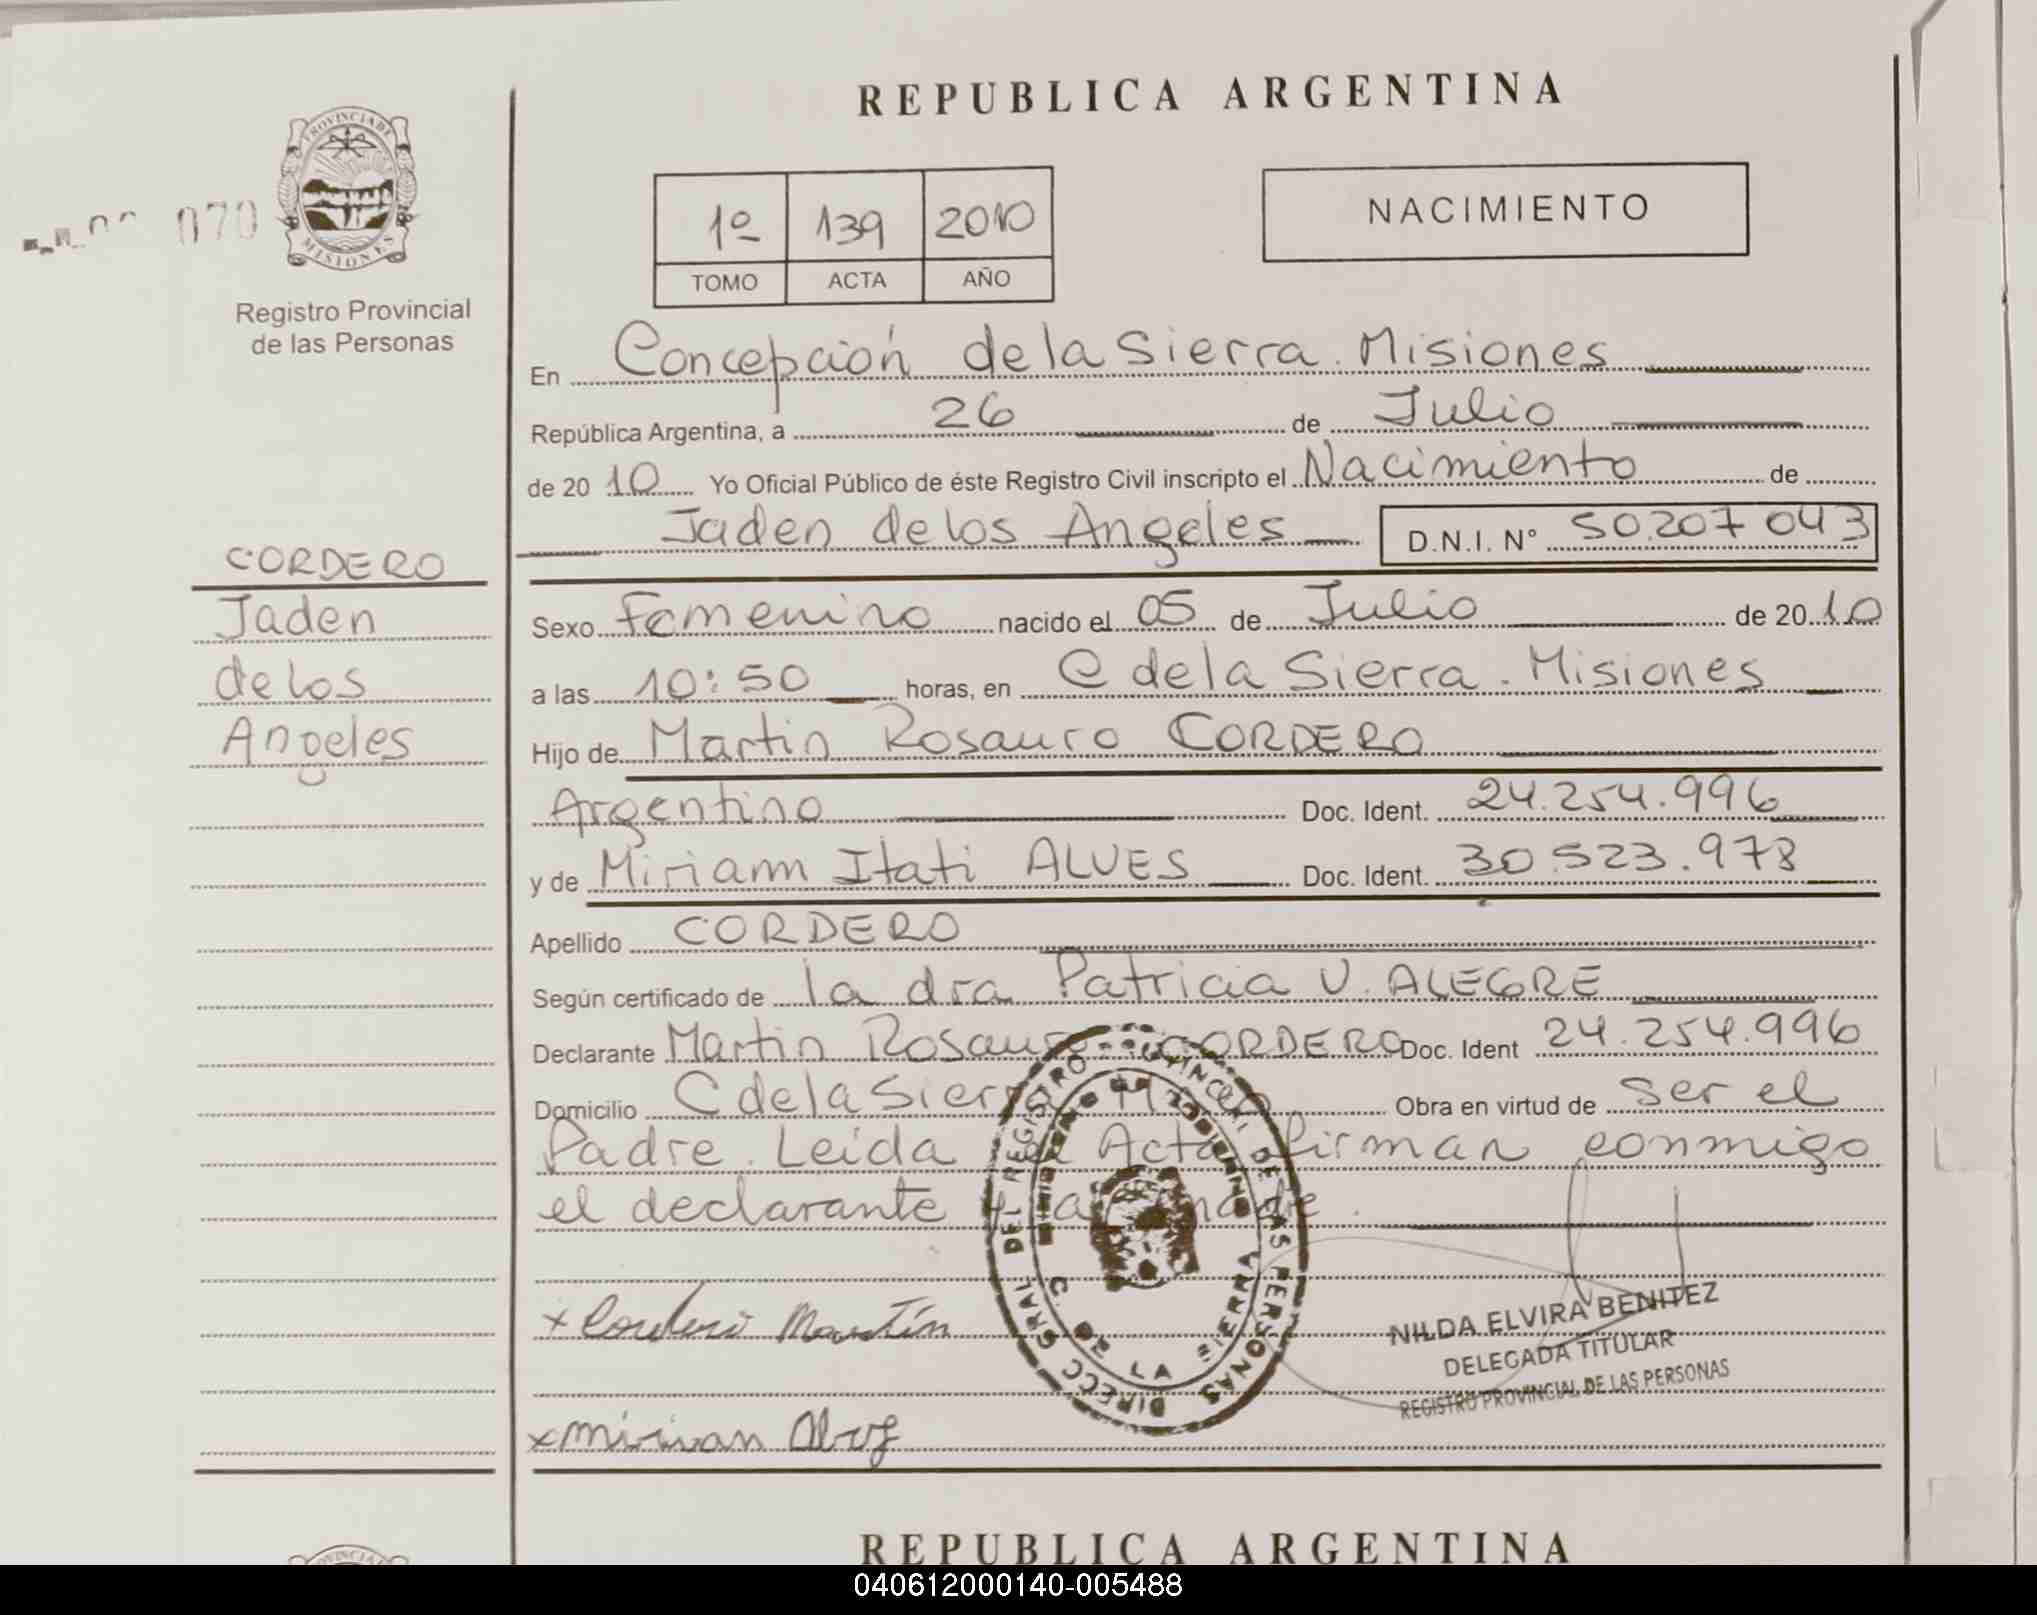 REPUBLICA ARGENTINA
PROVINCIA DE
MISIONES
070
Registro Provincial
de las Personas
1º 139 2010
TOMO ACTA AÑO
NACIMIENTO
En Concepción de la Sierra. Misiones
República Argentina, a 26 de Julio
de 2010 Yo Oficial Público de éste Registro Civil inscripto el Nacimiento de
Jaden de los Angeles D.N.I. N° 50.207 043
CORDERO
Jaden
de los
Angeles
Sexo Femenino nacido el 05 de Julio de 2010
a las 10:50 horas, en C de la Sierra. Misiones
Hijo de Martin Rosauro CORDERO
Argentino Doc. Ident. 24.254.996
y de Miriam Itati ALVES Doc. Ident. 30.523.978
Apellido CORDERO
Según certificado de la dra Patricia V. ALEGRE
Declarante Martin Rosauro CORDERO Doc. Ident 24.254.996
Domicilio C de la Sierra Obra en virtud de ser el
Padre. Leida el Acta firman conmigo
el declarante y la madre.
DIRECC GRAL DEL REGISTRO PROVINCIAL DE LAS PERSONAS
MINISTERIO DE GOBIERNO
C. DE LA SIERRA
x Cordero Martín
x Mirian Alvez
NILDA ELVIRA BENITEZ
DELEGADA TITULAR
REGISTRO PROVINCIAL DE LAS PERSONAS
REPUBLICA ARGENTINA
040612000140-005488